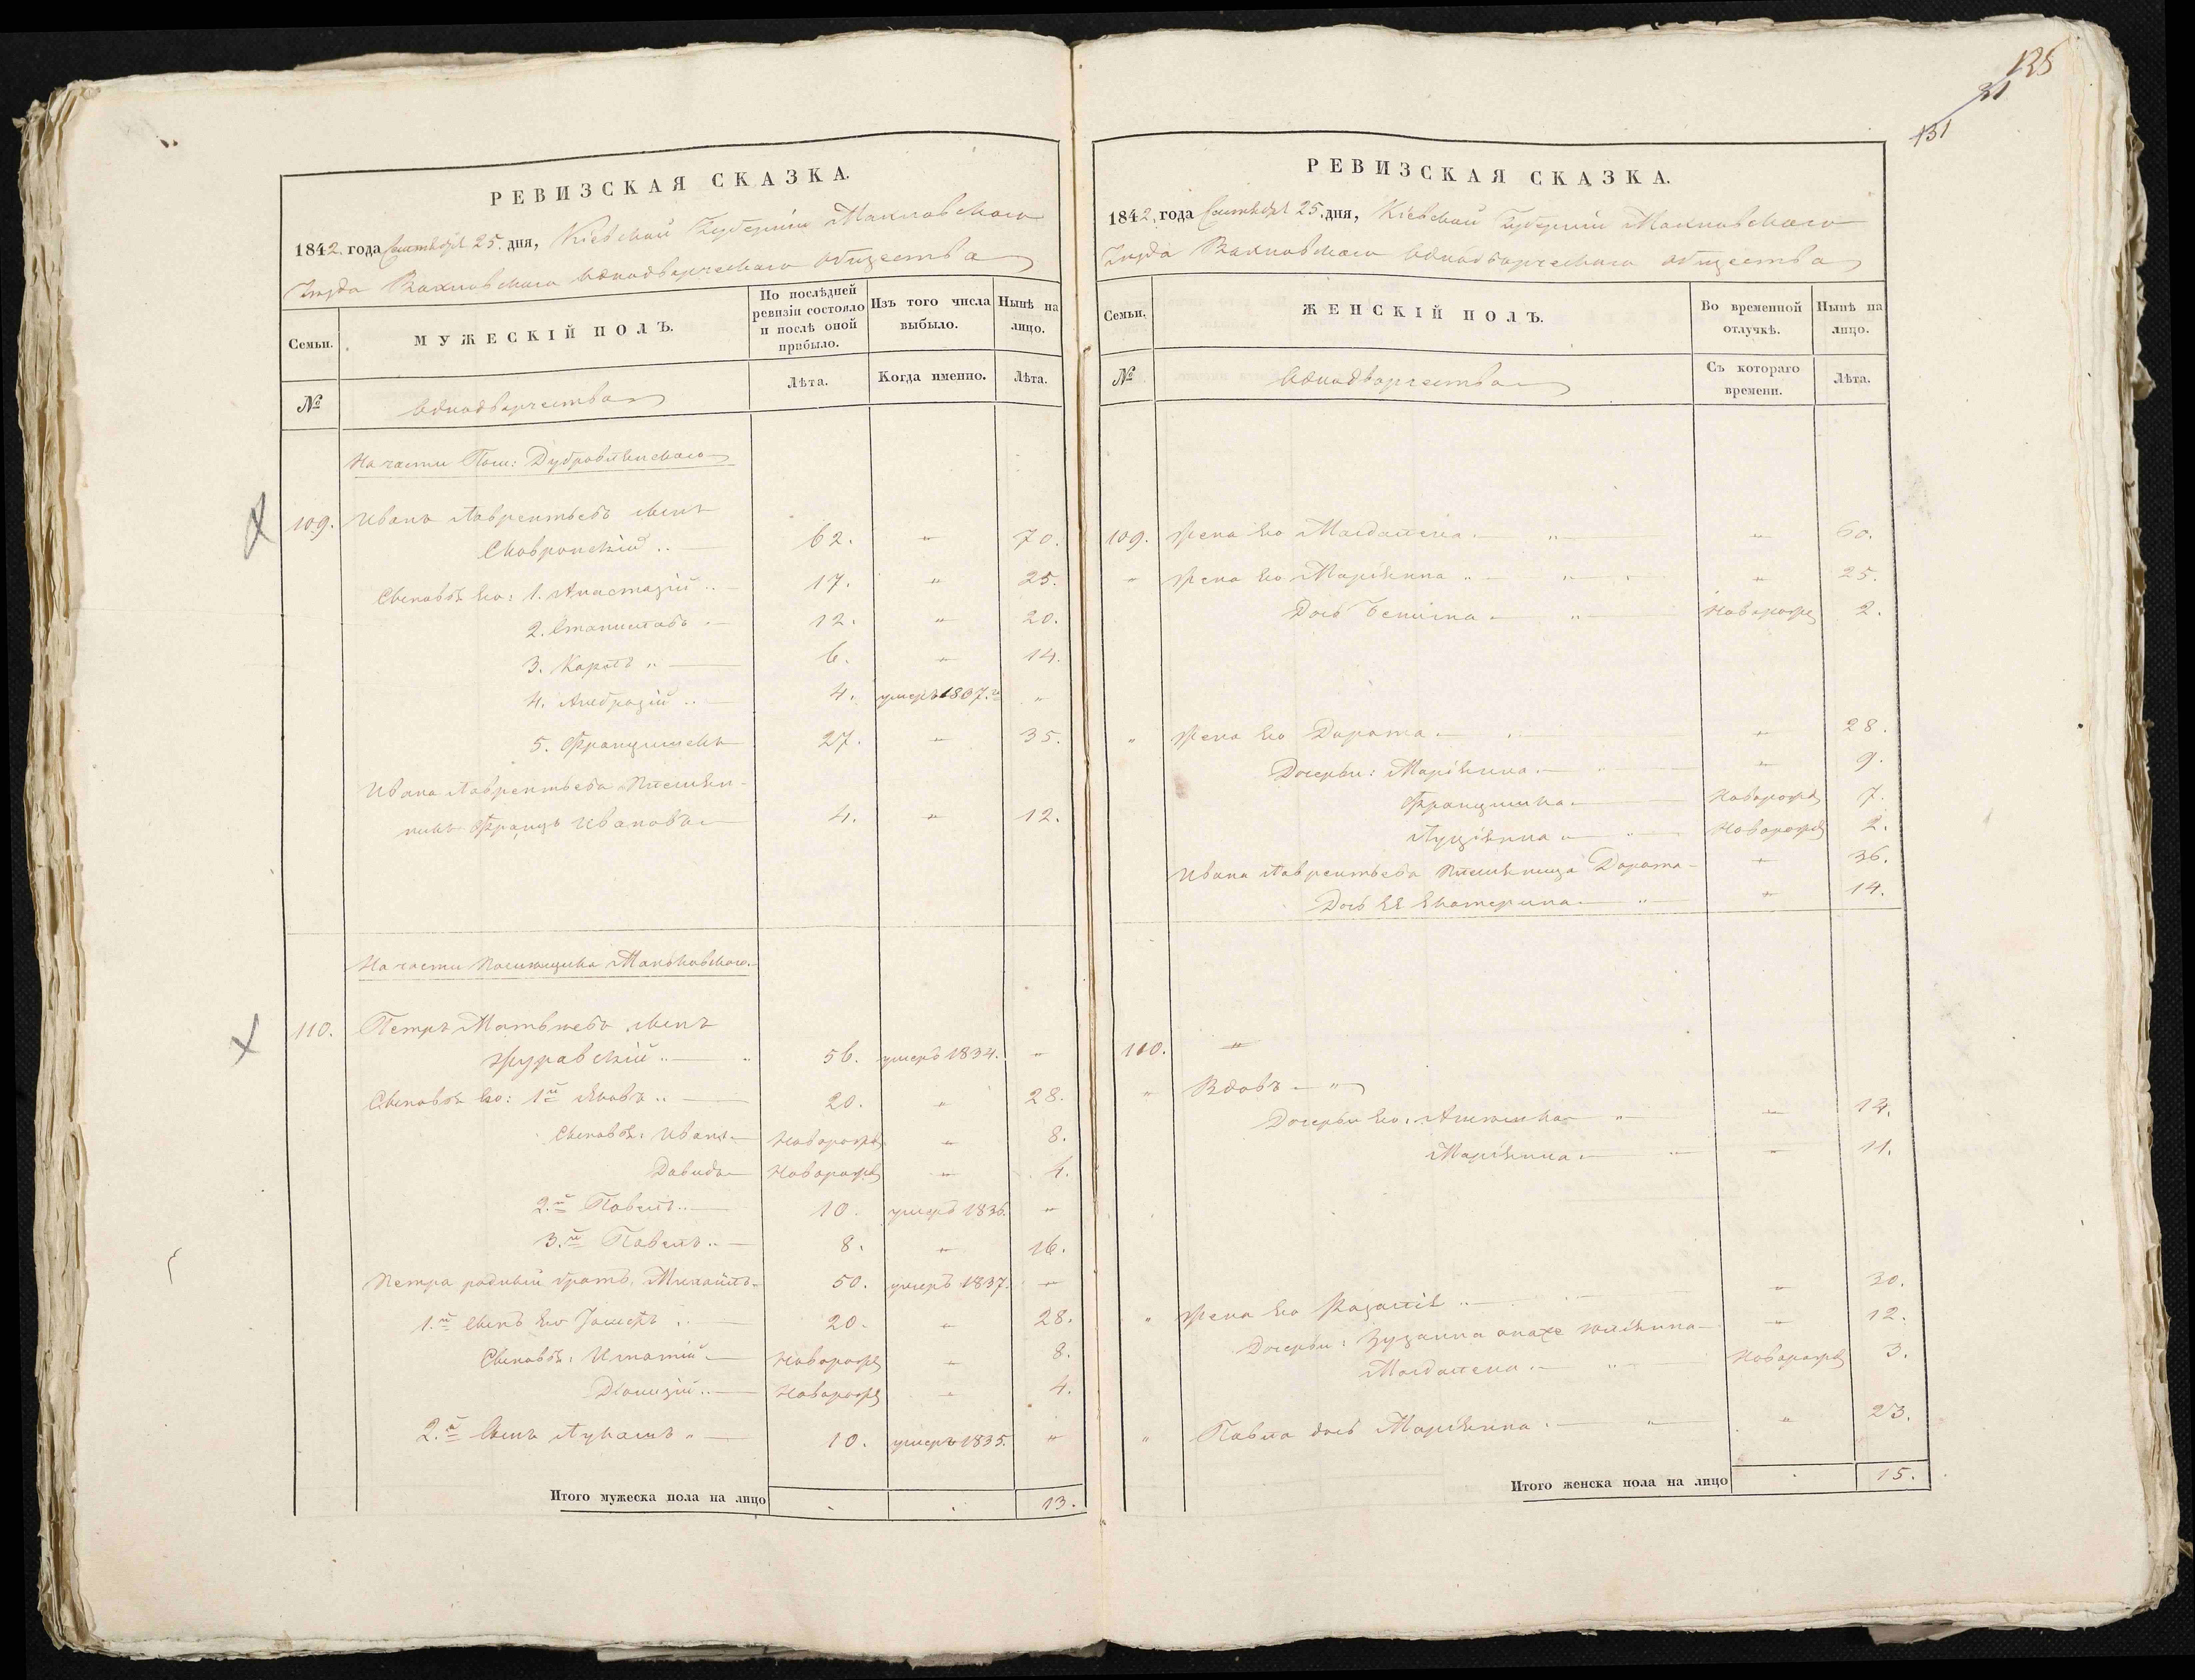 125
31
131
РЕВИЗСКАЯ СКАЗКА.
1842. года Сентября 25. дня, Кіевской Губерніи Махновскаго
Уезда Вахновскаго Однодворческаго общества
Семьи.
МУЖЕСКІЙ ПОЛЪ.
По послѣдней ревизіи состояло и послѣ оной прибыло.
Изъ того числа выбыло.
Нынѣ на лицо.
№
Однодворчества
Лѣта.
Когда именно.
Лѣта.
На части Пом:
109. Иванъ Лаврентьевъ сынъ
Сковронскій 62. " 70.
Сыновья его: 1. Анастазій 17. " 25.
2. Станиславъ 12. " 20.
3. Кароль 6. " 14.
4. Амброзій 4. умеръ 1837.го "
5. Францишекъ 27. " 35.
Ивана Лаврентьева племян-
никъ Францъ Ивановъ 4. " 12.
На части помѣщика Маньковскаго
110. Петръ Матвѣевъ сынъ
Журавскій 56. умеръ 1834. "
Сыновья его: 1й Яковъ 20. " 28.
Сыновья: Иванъ Новорожд " 8.
Давидъ Новорожд " 4.
2.й Павелъ 10. умеръ 1836. "
3.й Павелъ 8. " 16.
Петра родный братъ Михайлъ 50. умеръ 1837. "
1.й сынъ его 20. " 28.
Сыновья: Игнатій Новорожд " 8.
Діонизій Новорожд " 4.
2.й сынъ Лукашъ 10. умеръ 1835. "
Итого мужеска пола на лицо . . 13.
РЕВИЗСКАЯ СКАЗКА.
1842. года Сентября 25. дня, Кіевской Губерніи Махновскаго
Уезда Вахновскаго Однодворческаго общества
Семьи.
ЖЕНСКІЙ ПОЛЪ.
Во временной отлучкѣ.
Нынѣ на лицо.
№
Однодворчества
Съ котораго времени.
Лѣта.
109. Жена его Магдалена " " 60.
" Жена его Маріянна " " 25.
Дочь Новорожд 2.
" Жена его Дарота " 28.
Дочерьи: Маріянна " 9.
Францишка Новорожд 7.
Луціянна Новорожд 2.
Ивана Лаврентьева племяница Дарота " 36.
Дочь ея Екатерина " 14.
110. "
" Вдовъ "
Дочерьи его: " 12.
Маріянна " 11.
" Жена его Розалія " 30.
Дочерьи: Зузанна онаже Юліянна " 12.
Магдалена Новорожд 3.
" Павла дочь Маріянна " 23.
Итого женска пола на лицо . 15.